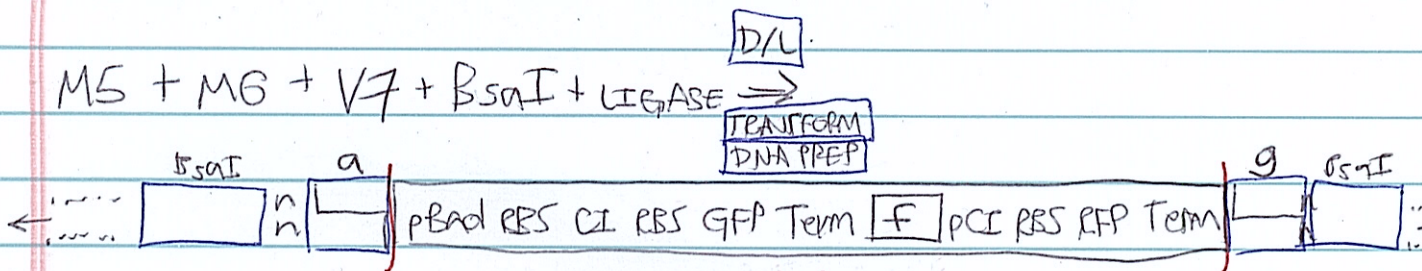 D/L.
M5 + M6 + V7 + BsaI + LIGASE ⇒
TRANSFORM
DNA PREP
BsaI n n a pBad RBS CI RBS GFP Term f pCI RBS RFP Term g BsaI